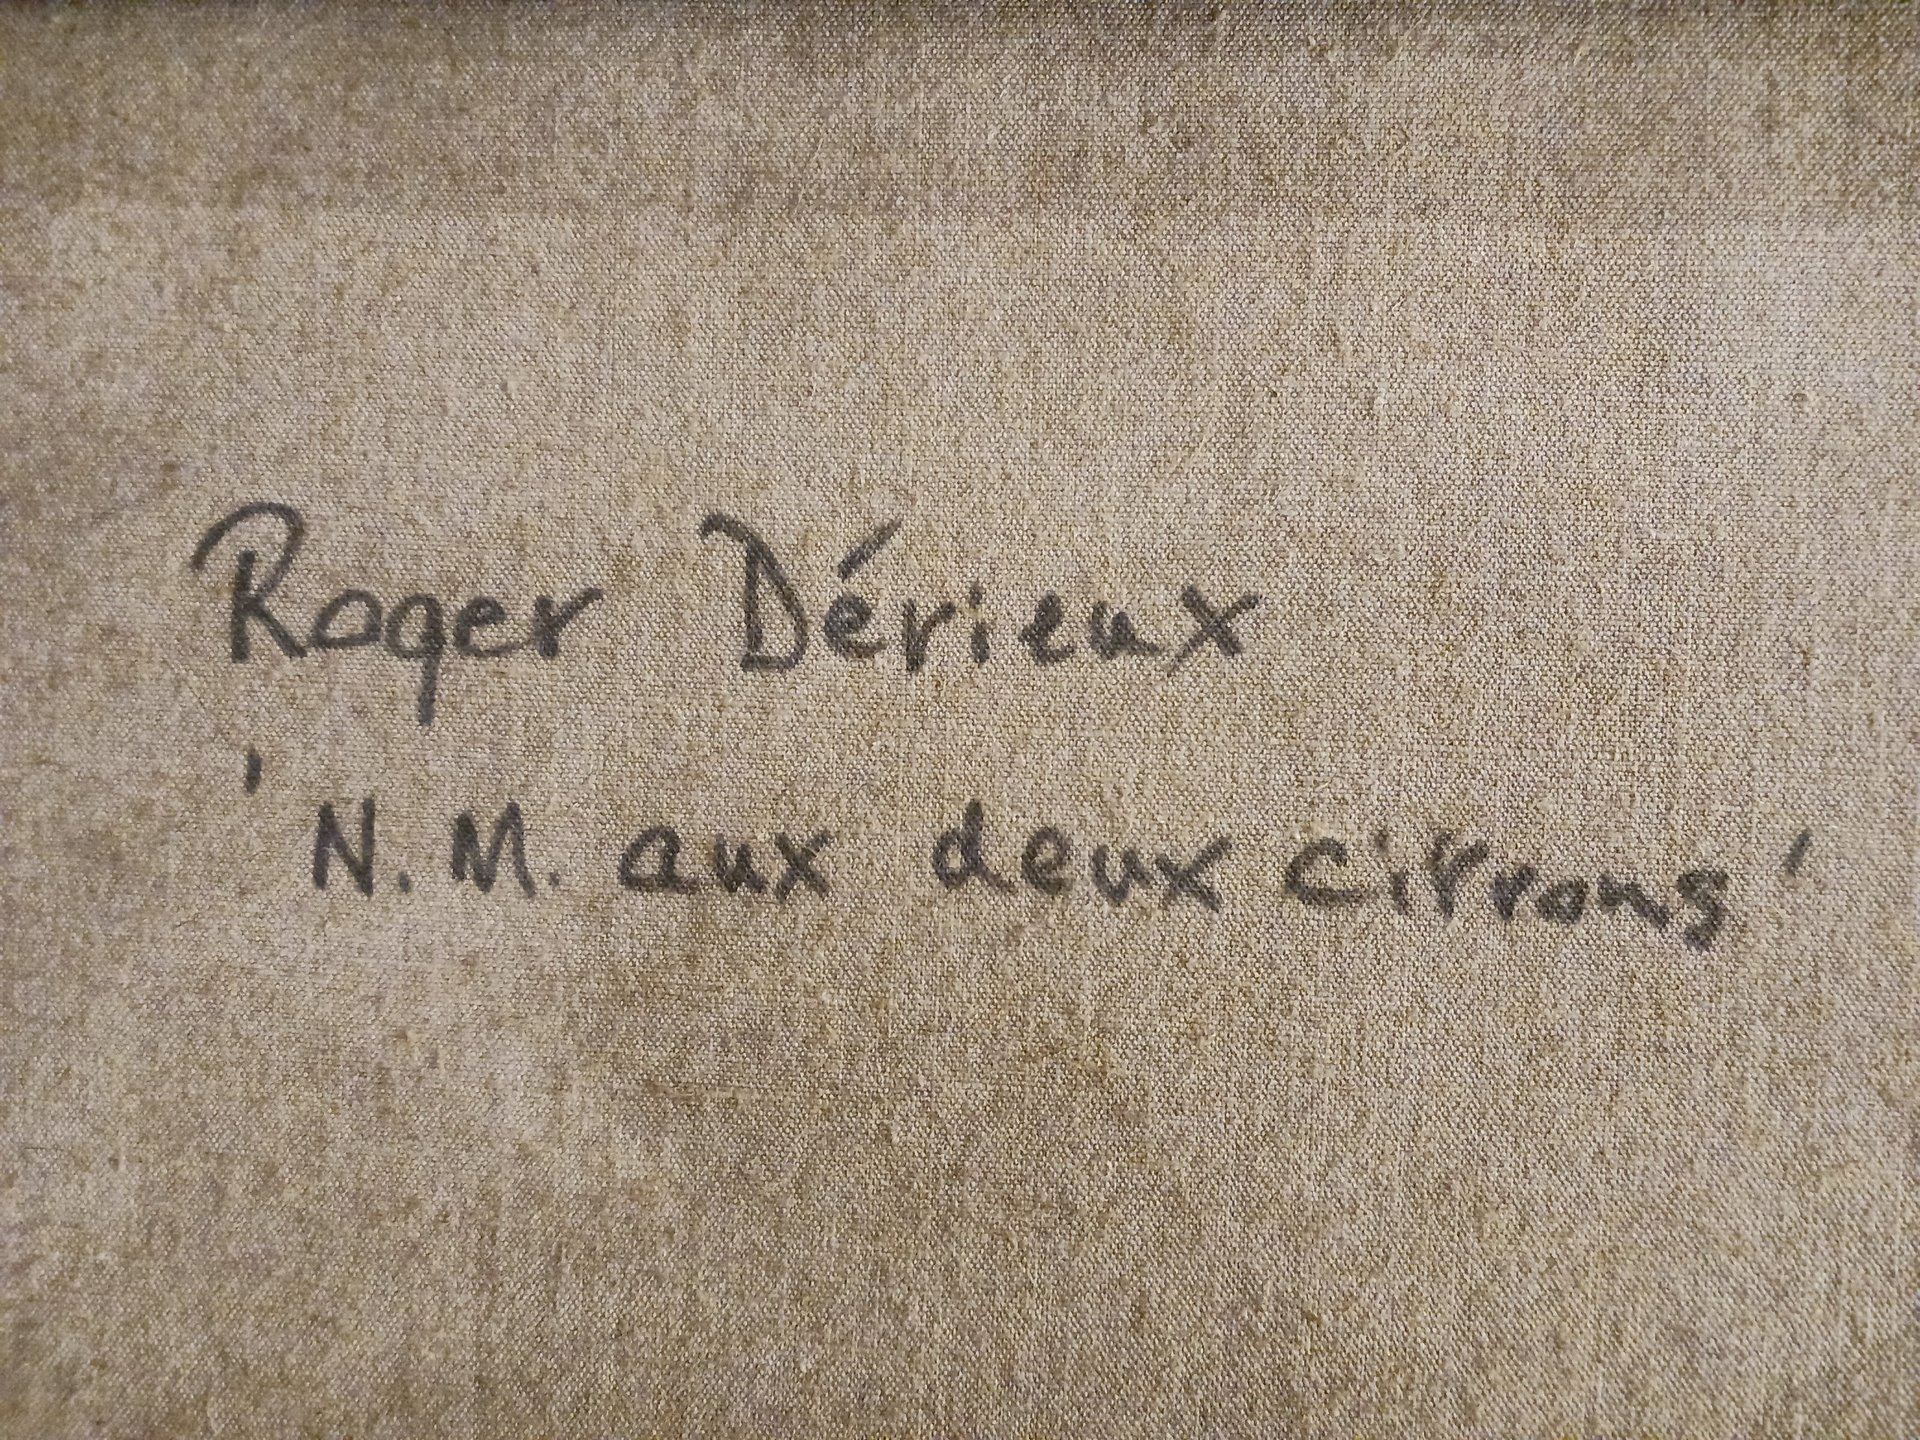 Roger Dérieux
'N.M. aux deux citrons'